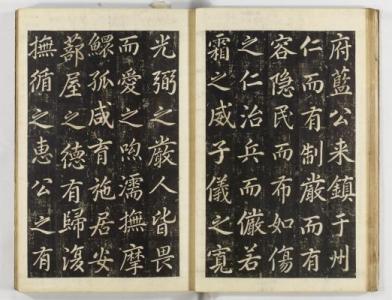 府藍公来鎮于州
仁而有制嚴而有
容隐民而布如傷
之仁治兵而儼若
霜之威子儀之寛
光弼之嚴人皆畏
而愛之呴濡撫摩
鰥孤咸育施居安
蔀屋之德有歸復
撫循之惠公之有